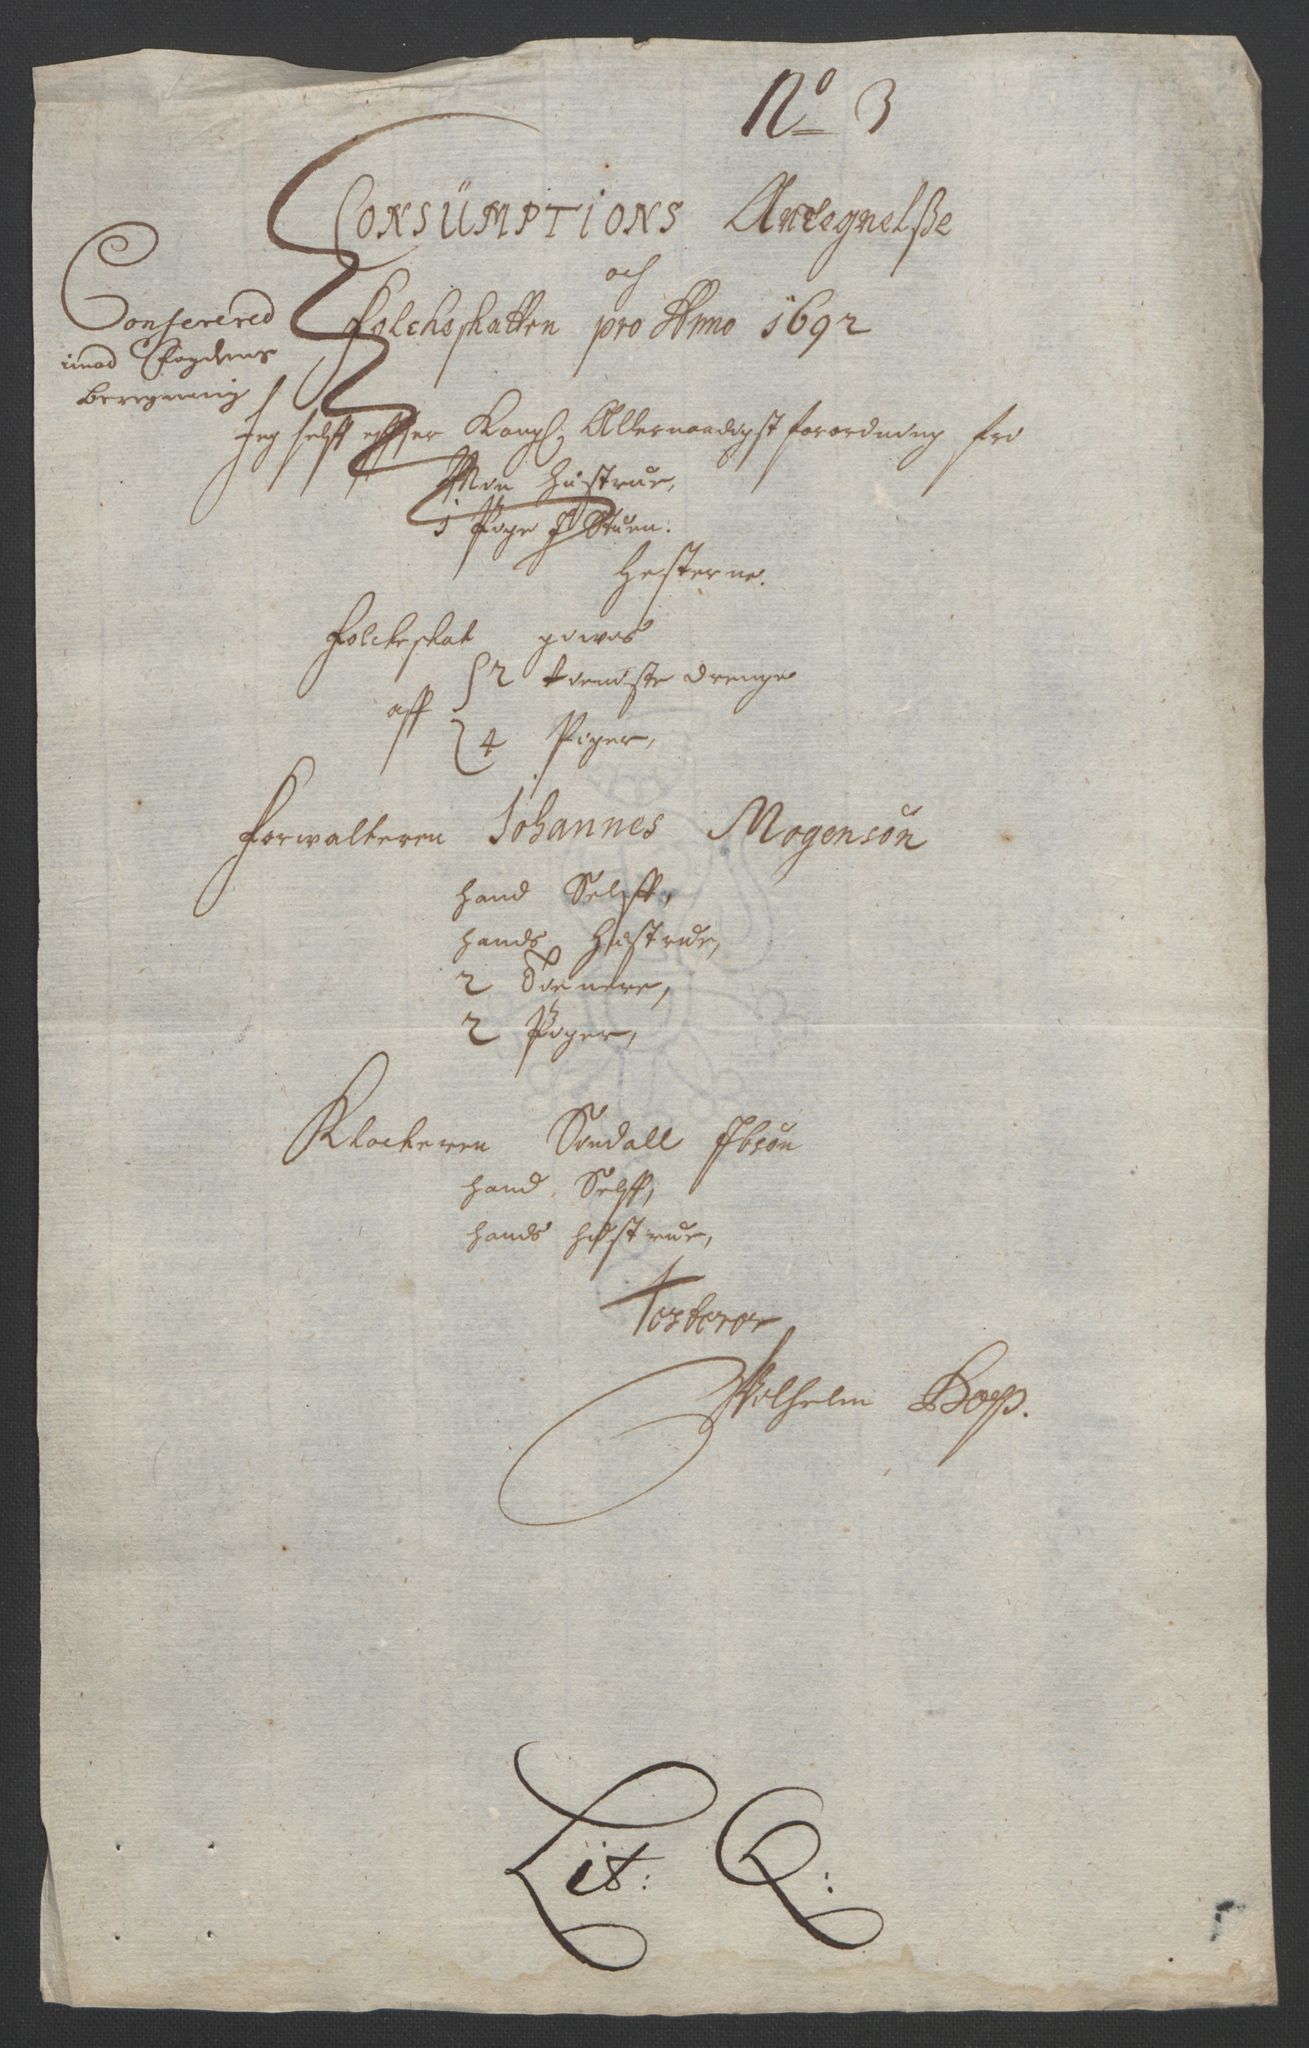 No 3
CONSÜMPTIONS Antegnelsße
och
Folcheskatten pro Anno 1692
Conferered
imod Fogdens
beregning
Jeg selff effter Kongl. Allernaadigst forordning fri
Min Hustrue,
1 Pige J Stuen.
Hesterne.
Folcheskat gives
aff { 2 tieniste drenge
4 Piger,
Forvalteren Johannes Mogensøn
hand Selff,
hands Hustrue,
2 Tienere,
2 Piger,
Klockeren Sendall Ibsøn
hand Selff,
hands hustrue,
Testerer
Wilhelm
Lit: Q: